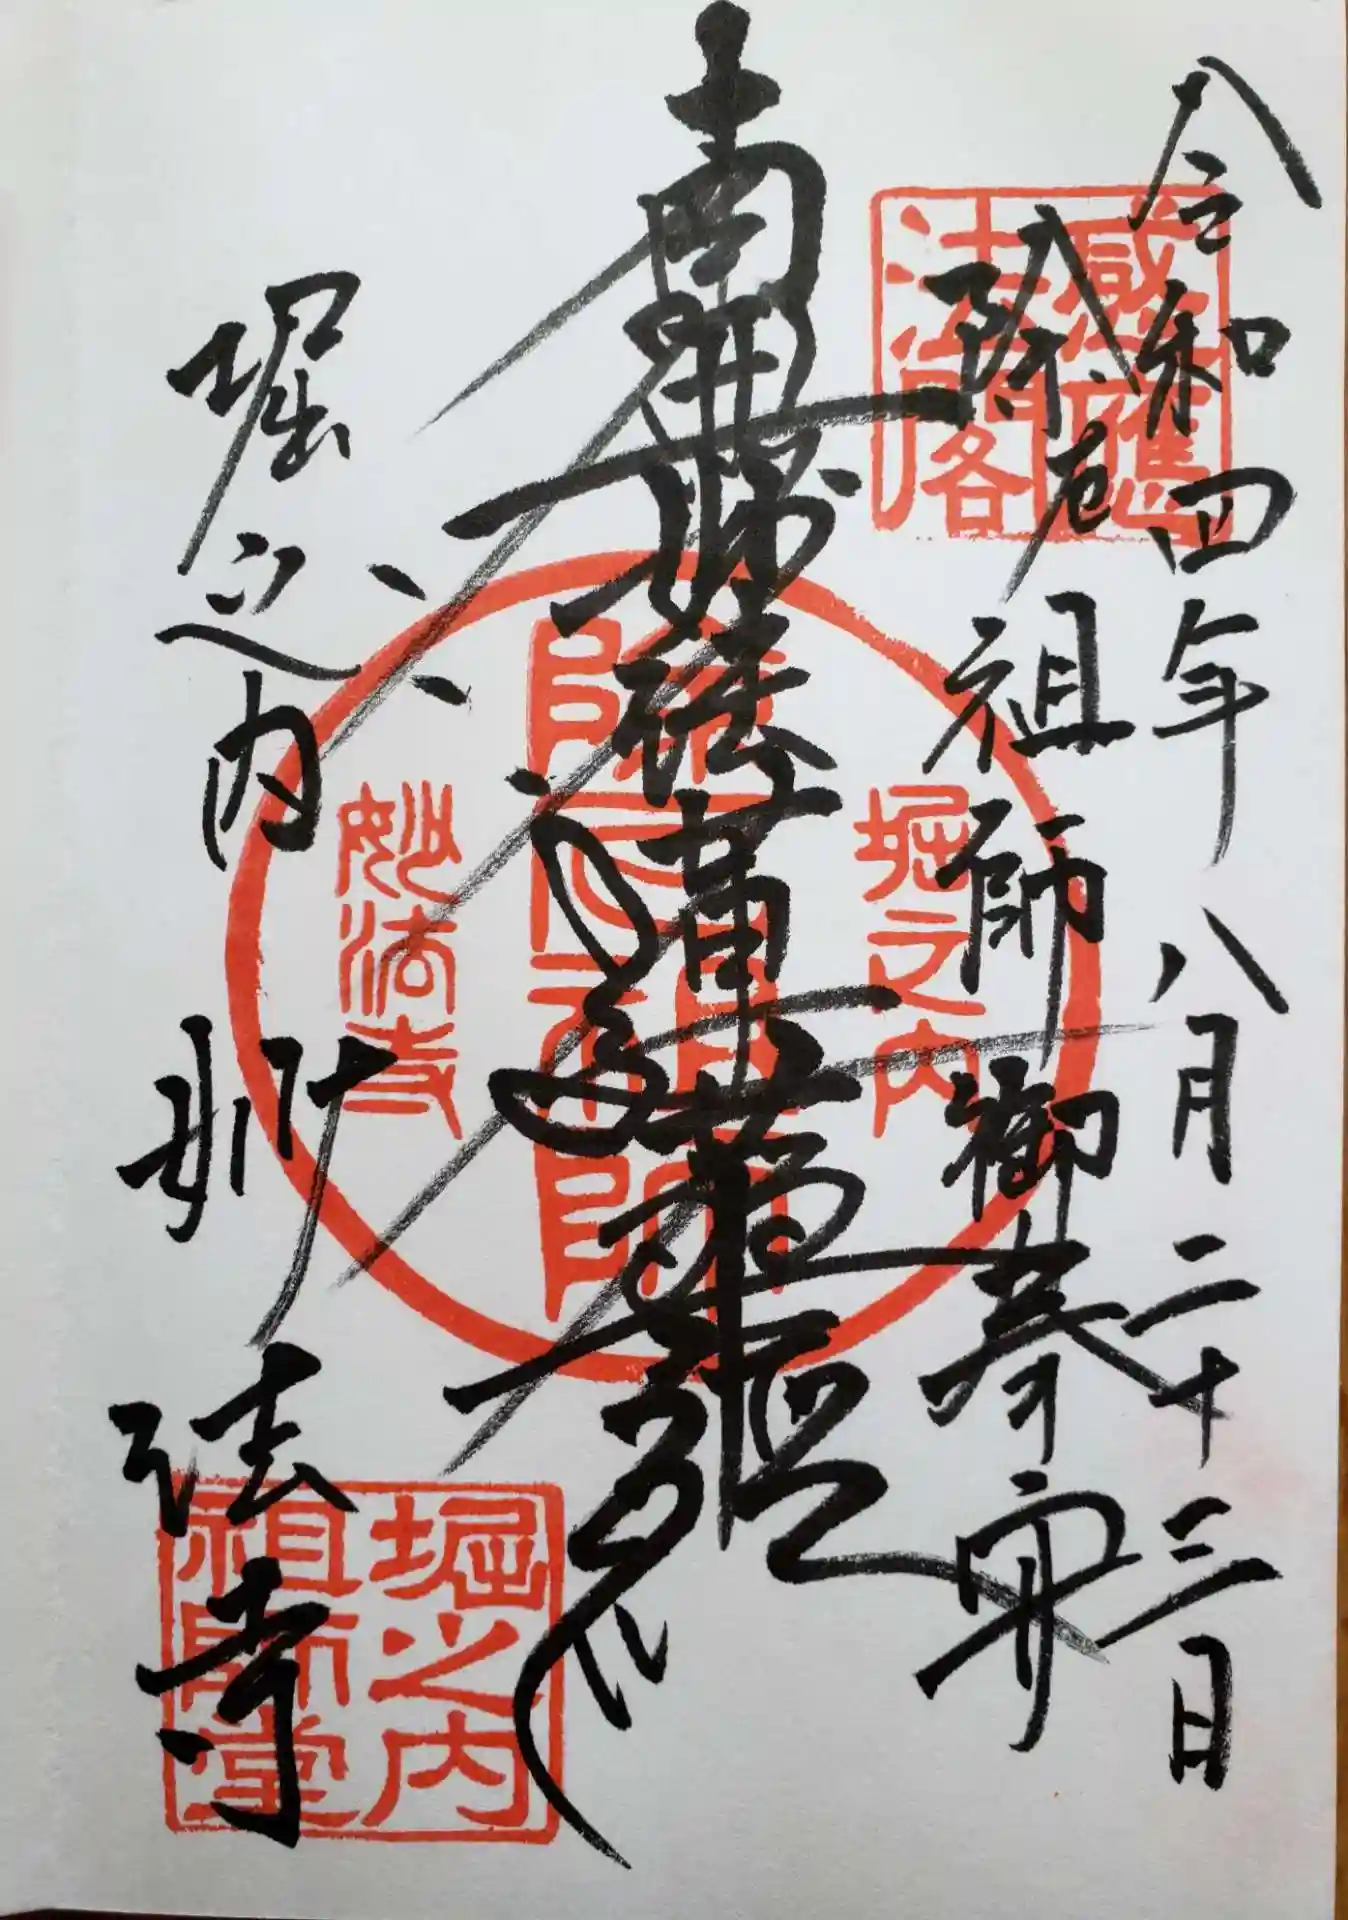 令和四年八月二十三日
除厄祖師御奉安
南無妙法蓮華経
堀之内妙法寺
感應法閣
堀之内
除厄祖師
妙法寺
堀之内
祖師堂